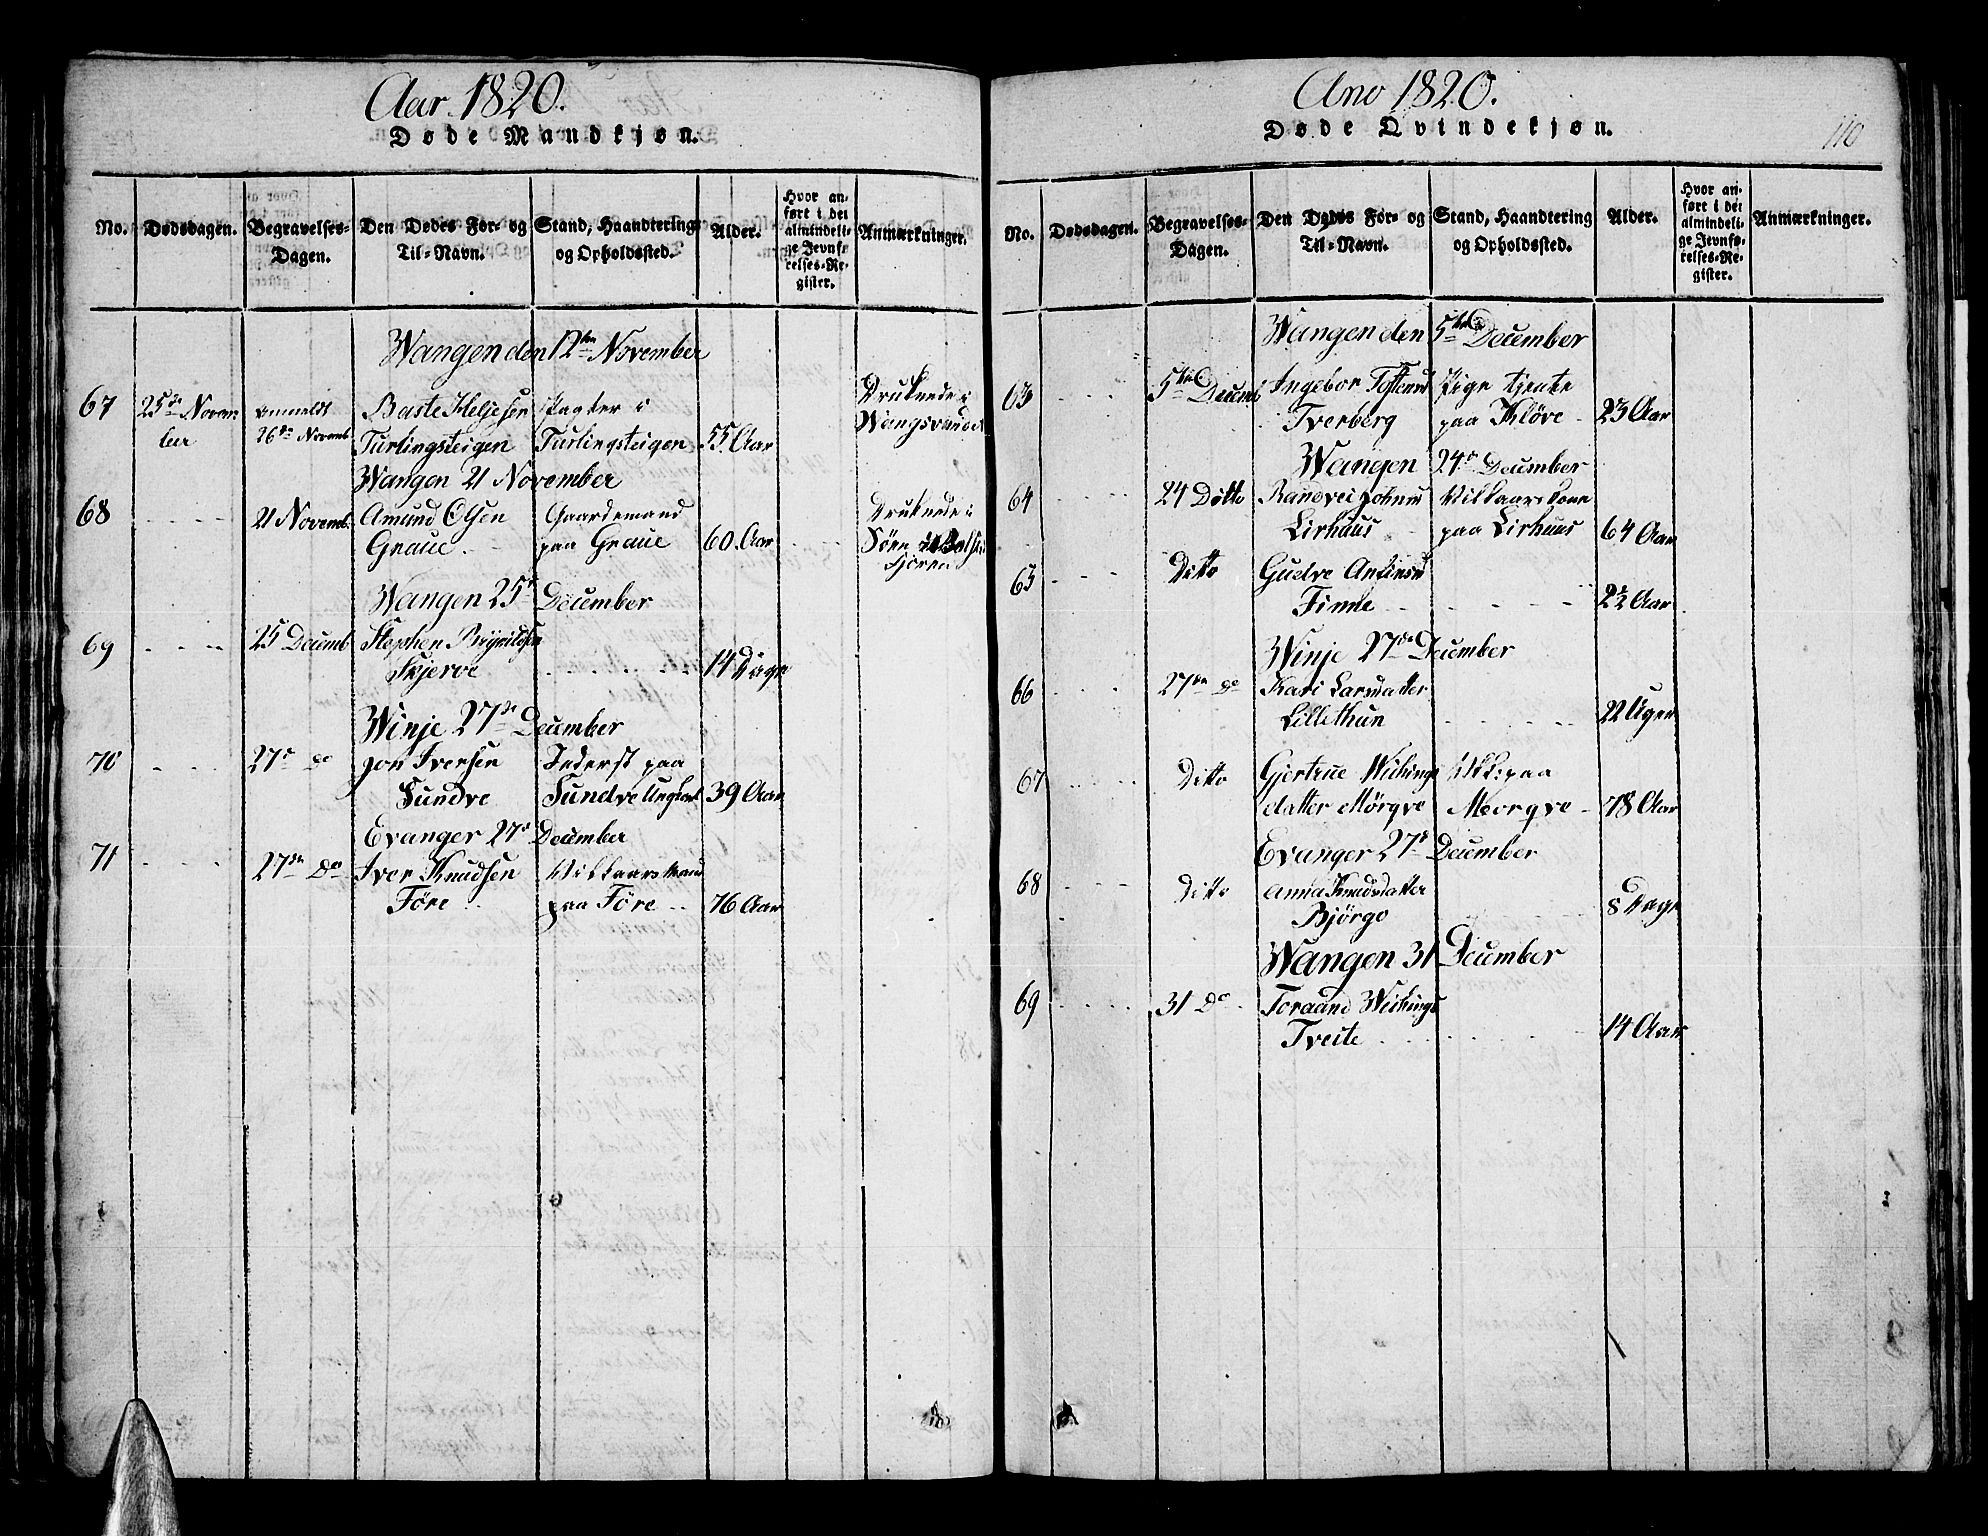 Aar 1820.
Døde Mandkjøn.
No. Dødsdagen. Begravelses-Dagen. Den Dødes For- og Til-Navn. Stand, Haandtering og Opholdssted. Alder. Hvor anført i det almindelige Jevnførelses-Register. Anmærkninger.
Wangen den 12te November
67 25de November anmeldt 26de Novemb Baste Heljesen Pagter i Druknede i
Turlingsteigen Turlingsteigen 55 Aar Wangsvandet
Wangen 21 November
68 21 Novemb. Amund Olsen Gaardemand Druknede i
Graue paa Graue 60. Aar Sönn
Fjoren
Wangen 25de December
69 25 Decemb Stephen Brynildsen
Skjerve 14 Dage
Winje 27de December
70 27de do Jon Iversen Inderst paa
Sundve Sundve Ungkarl 39 Aar
Evanger 27de December
71 27de Do Iver Knudsen Vilkaarsmand
Före paa Före 76 Aar
Ano 1820.
Døde Qvindekjøn.
110
No. Dødsdagen. Begravelses-Dagen. Den Dødes For- og Til-Navn. Stand, Haandtering og Opholdssted. Alder. Hvor anført i det almindelige Jevnførelses-Register. Anmærkninger.
Wangen den 5te December
63 5te Decemb Ingebor Tostensd Pige tjente
Tverberg paa Klöve 23 Aar
Wangen 24de December
64 24 Ditto Randvei Johnsd Vilkaarskone
Lirhuus paa Lirhuus 64 Aar
65 Ditto Gudve
Finne 2½ Aar
Winje 27de December
66 27de do Kari Larsdatter
Lillethun 22 Uger
67 Ditto Gjertrue Wichings Vilk: paa
datter Mörqve Morqve 78 Aar
Evanger 27de December
68 Ditto Anna Knudsdatter
Björgo 8 Dage
Wangen 31 December
69 31 Do Toraand Wichings
Tveite 14 Aar